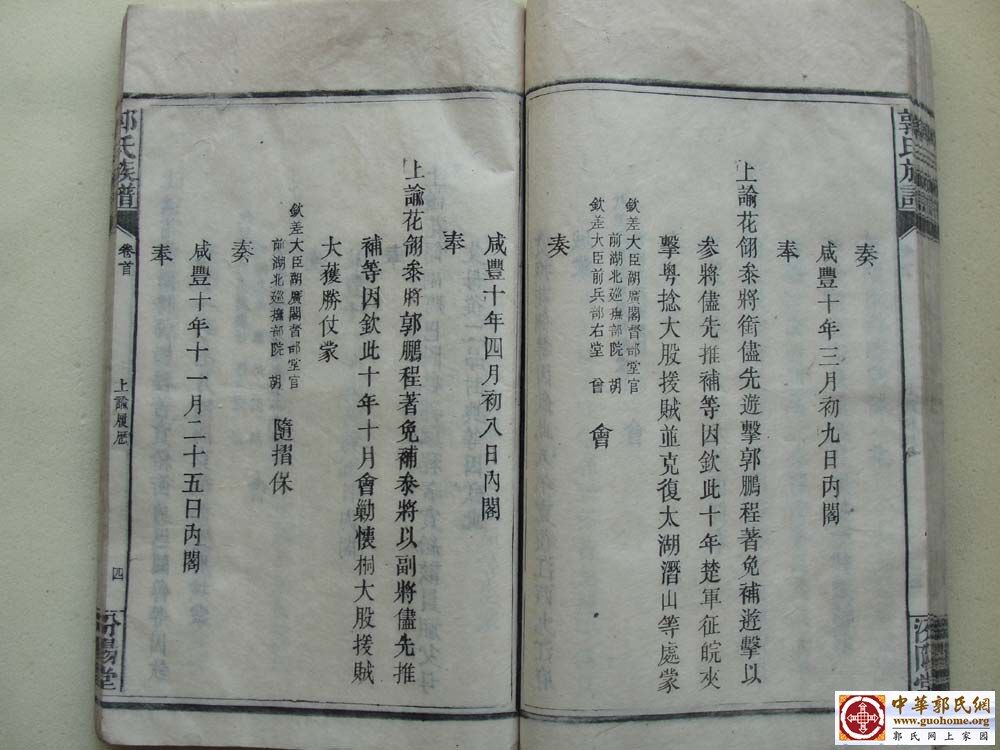 郭氏族譜
汾陽堂
奏
咸豐十年三月初九日內閣
奉
上諭花翎叅將銜儘先遊擊郭鵬程著免補遊擊以
參將儘先推補等因欽此十年楚軍征皖夾
擊粵捻大股援賊並克復太湖潛山等處蒙
欽差大臣湖廣閣督部堂官
前湖北巡撫部院 胡
欽差大臣前兵部右堂 曾
會
奏
咸豐十年四月初八日內閣
奉
上諭花翎叅將郭鵬程著免補叅將以副將儘先推
補等因欽此十年十月會勦懷桐大股援賊
大獲勝仗蒙
欽差大臣湖廣閣督部堂官
前湖北巡撫部院 胡
隨摺保
奏
咸豐十年十一月二十五日內閣
奉
郭氏族譜
卷首
上諭履歷
四
汾陽堂
中華郭氏網
www.guohome.org
郭氏网上家园